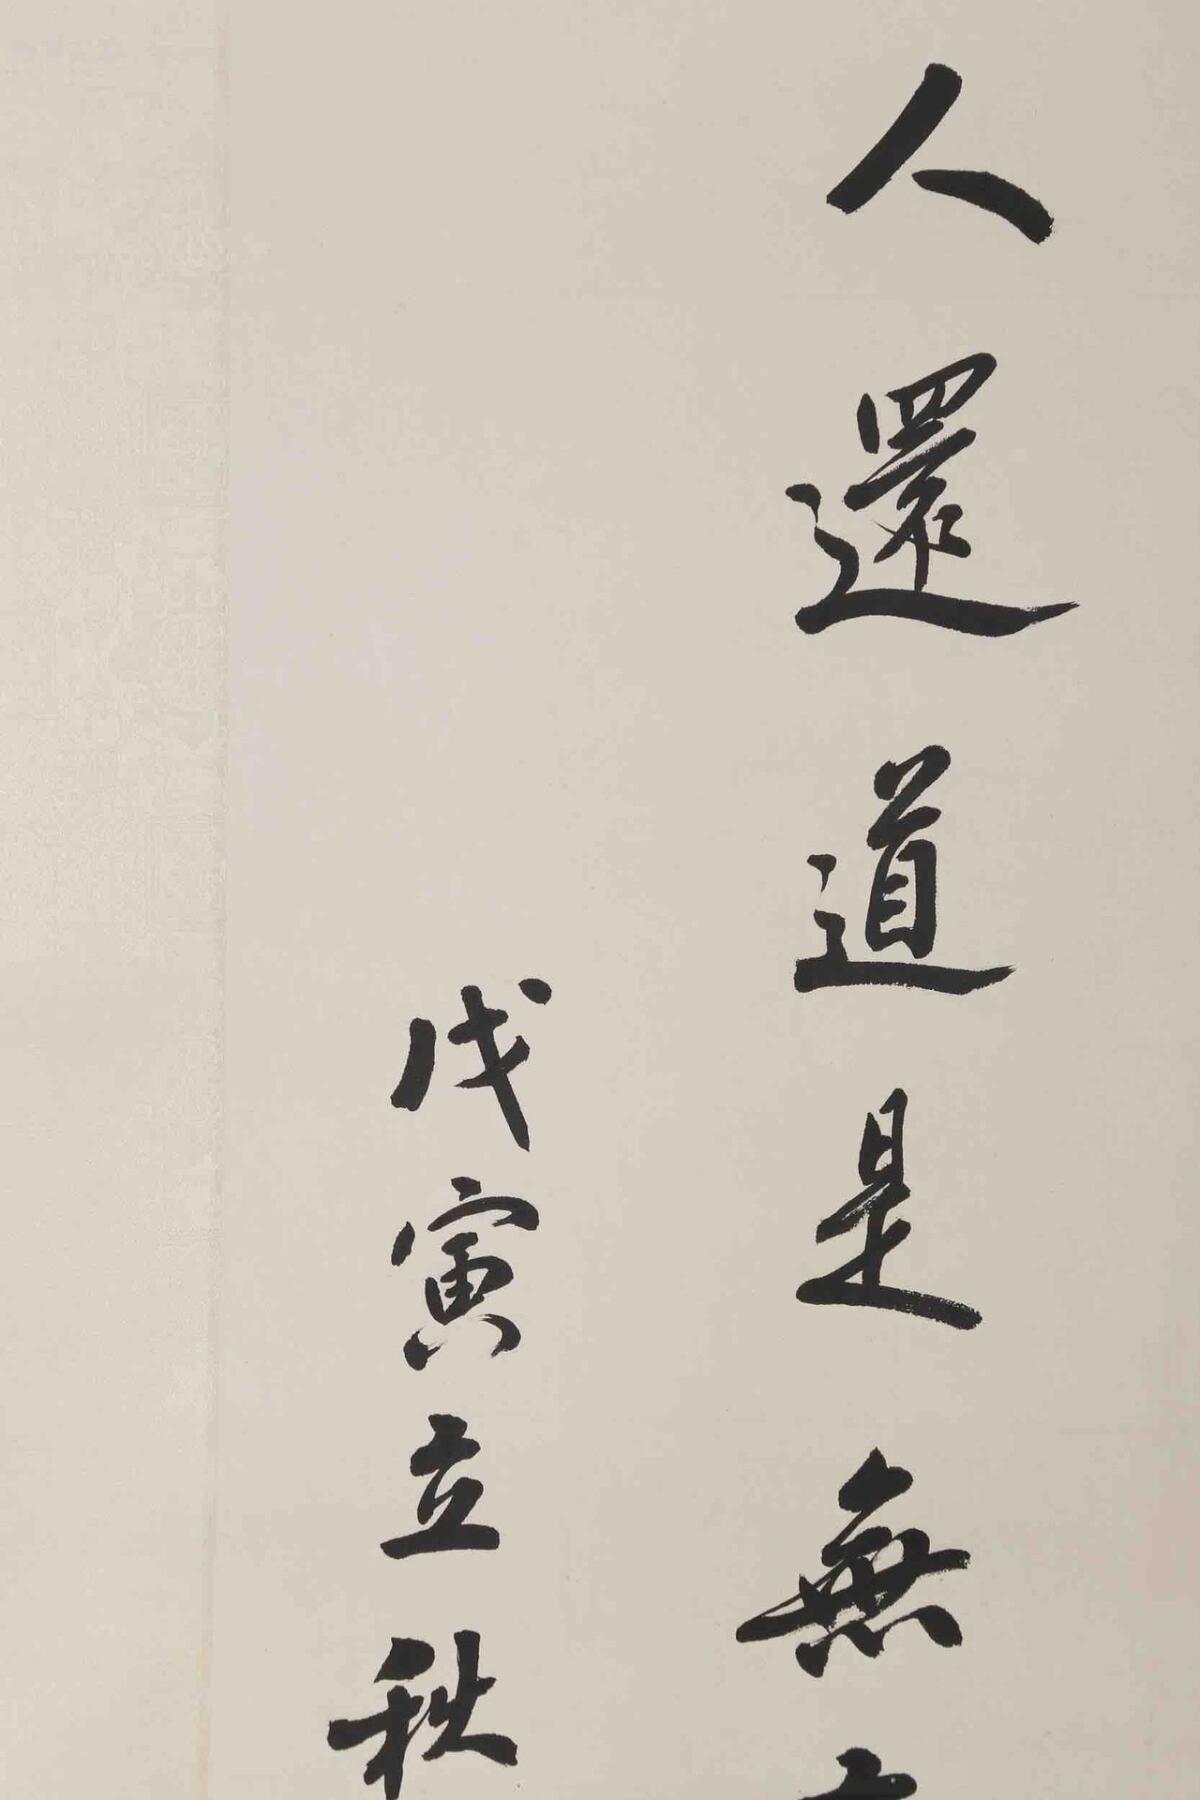 人還道是無
戊寅立秋